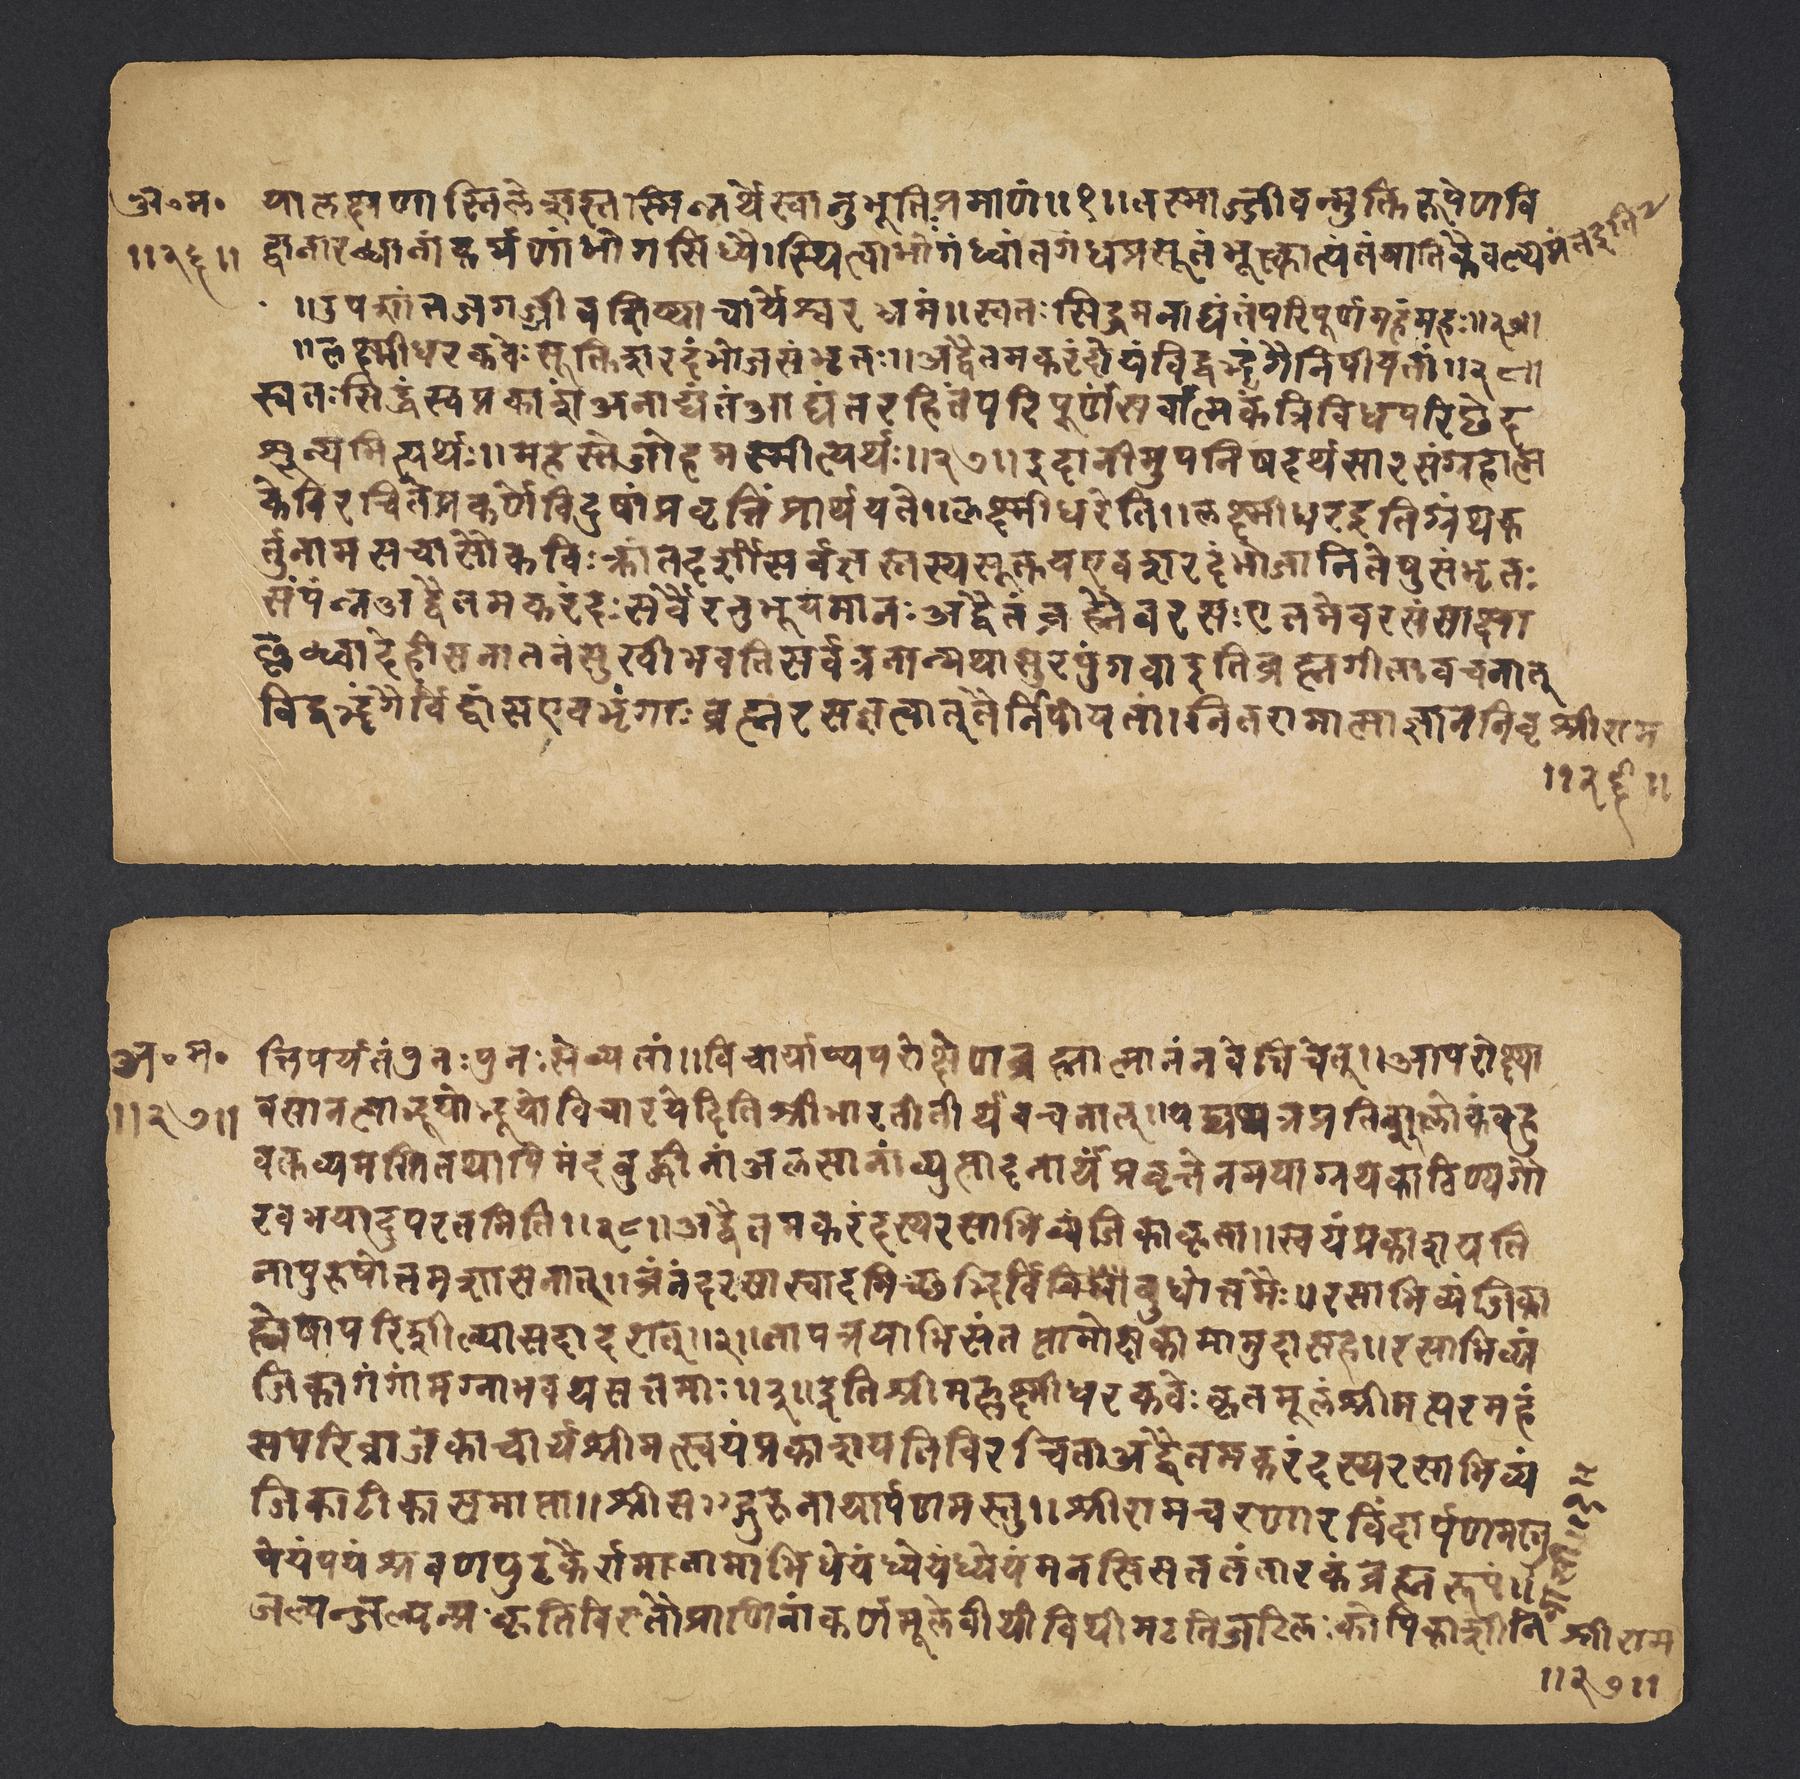 अ॰म॰ यालक्षणास्तिलेशस्तस्मिन्नर्थेस्वानुभूतिःप्रमाणं॥१॥तस्माज्जीवन्मुक्तिरूपेणवि
॥२६॥ द्वानारब्धानांकर्मणांभोगसिध्यै।स्थित्वाभोगंध्वांतगंधप्रसूतंभुक्त्कात्यंतंयातिकैवल्यमंतइति
॥उपशांतजगज्जीवशिष्याचार्येश्वरभ्रमं॥स्वतःसिद्धमनाद्यंतंपरिपूर्णमहंमहः॥२७॥
॥लक्ष्मीधरकवेःसूक्तिशरदंभोजसंभृतः॥अद्वैतमकरंदोयंविद्वद्भृंगैनिपीयतां॥२८॥
स्वतःसिद्धंस्वप्रकाशंअनाद्यंतंआद्यंतरहितंपरिपूर्णंसर्वात्मकंत्रिविधपरिछेद
शून्यमित्यर्थः॥महस्तेजोहमस्मीत्यर्थः॥२७॥इदानीमुपनिषदर्थसारसंग्रहात्म
केविरचितेप्रकर्णेविदुषांप्रवृत्तिंप्रार्थयते॥लक्ष्मीधरेति॥लक्ष्मीधरइतिग्रंथक
र्तुनामसचासौकविःक्रांतदर्शीसर्वज्ञस्तस्यसूक्तयएवशरदंभोजानितेषुसंभृतः
संपंन्नअद्वैतमकरंदःसर्वैरनुभूयमानःअद्वैतंब्रह्मैवरसःएतमेवरसंसाक्षा
ल्लब्ध्वादेहीसनातनंसुखीभवतिसर्वत्रनान्यथासुरपुंगवाइतिब्रह्मगीतावचनात्
विद्वद्भृंगैर्विद्वांसएवभृंगाःब्रह्मरसज्ञत्वात्तैर्निपीयतां।नितरामात्माज्ञाननिवृ श्रीराम
॥२६॥
अ॰म॰ त्तिपर्यंतंपुनःपुनःसेव्यतां॥विचार्याप्यपरोक्षेणब्रह्मात्मानंनवेत्तिचेत्॥आपरोक्ष्या
॥२७॥ वसानत्वाद्भूयोभूयोविचारयेदितिश्रीभारतीतीर्थवचनात्॥यद्यप्यत्रप्रतिश्लोकंबहु
वक्तव्यमस्तितथापिमंदबुद्धीनांअलसानांव्युत्पादनार्थंप्रवृत्तेनमयाग्रथकाठिण्यगौ
रवभयादुपरतमिति॥२८॥अद्वैतमकरंदस्यरसाभिव्यंजिकाकृता॥स्वयंप्रकाशयति
नापुरुषोत्तमशासनात्॥ब्रंनंदरसास्वादमिच्छद्भिर्विबुधोत्तमैः॥रसाभिव्यंजिका
ह्येषापरिशील्यासदादरात्॥२॥तापत्रयाभिसंतप्तामोक्षकामामुदासह॥रसाभिव्यं
जिकागंगांमग्नाभवथसत्तमाः॥३॥इतिश्रीमल्लक्ष्मीधरकवेःकृतमूलंश्रीमत्परमहं
सपरिव्राजकाचार्यश्रीमत्स्वयंप्रकाशयतिविरचिताअद्वैतमकरंदस्यरसाभिव्यं
जिकाटीकासमाप्ता॥श्रीसग्द्गुरुनाथार्पणमस्तु॥श्रीरामचरणारविंदार्पणमस्तु
पेयंपेयंश्रवणपुटकैर्रामनामाभिधेयंध्येयंध्येयंमनसिसततंतारकंब्रह्मरूपं॥
जल्पन्जल्पन्प्रकृतिविकृतौप्राणिनांकर्णमूलेवीथीविथीमटतिजटिलःकोपिकाशीनि श्रीराम
॥२७॥